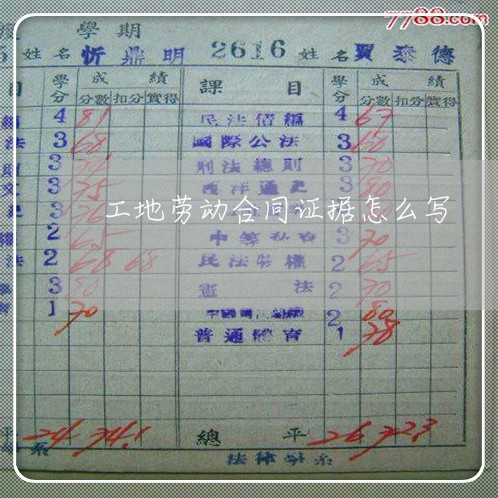 7788.com
學期
姓名 忻鼎明 2616 姓名 賈泰德
目 學分 成績 課目 學分 成績
分數 扣分 實得 分數 扣分 實得
4 81 民法債編 4 67
法 3 68 國際公法 3 60
3 刑法總則 3 70
3 75 西洋通史 3 80
3 76
工地劳动合同证据怎么写
2 65 3 70
法 2 68 68 民法物權 2 65
3 80 憲法 2 70
1 70 2 80
普通體育 1 78
平 24 74.1 總平 26 72.3
系 法律學系